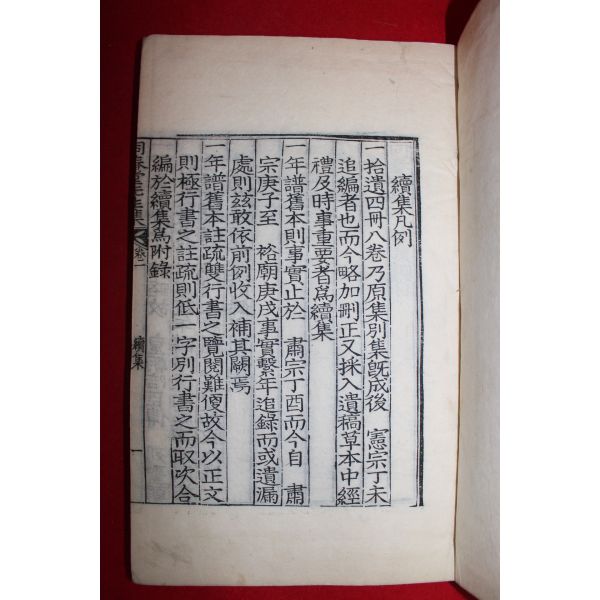 續集凡例
一拾遺四冊八卷乃原集別集旣成後 憲宗丁未
追編者也而今略加刪正又採入遺稿草本中經
禮及時事重要者爲續集
一年譜舊本則事實止於 肅宗丁酉而今自 肅
宗庚子至 祫廟庚戌事實繫年追錄而或遺漏
處則玆敢依前例收入補其闕焉
一年譜舊本註疏雙行書之覽閱難傻故今以正文
則極行書之註疏則低一字別行書之而取吹合
編於續集爲附錄
同春堂集 卷之一 續集 一